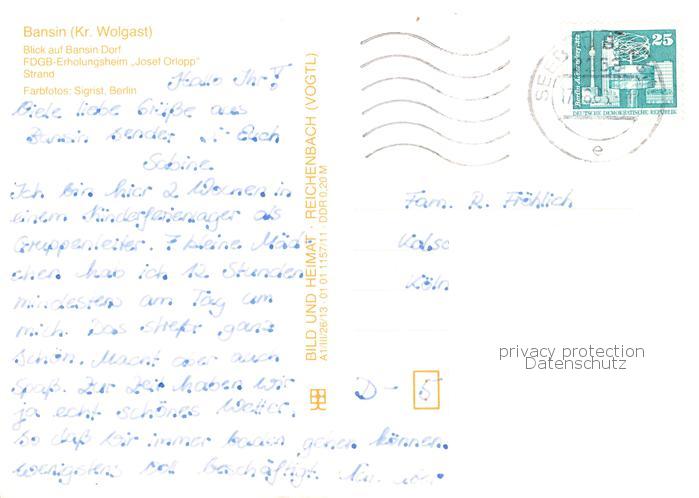 Bansin (Kr. Wolgast)
Blick auf Bansin Dorf
FDGB-Erholungsheim „Josef Orlopp"
Strand
Farbfotos: Sigrist, Berlin
Hallo Ihr!
Viele liebe Grüße aus
Bansin sendet Euch
Sabine.
Ich bin hier 2 Wochen in
einem Kinderferienlager als
Gruppenleiter. 7 kleine Mäd
chen hab ich 12 Stunden
mindestens am Tag um
mich. Das streßt ganz
schön. Macht aber auch
Spaß. Zur Zeit haben wir
ja echt schönes Wetter.
So daß wir immer baden gehen können.
wenigstens beschäftigt.
BILD UND HEIMAT · REICHENBACH (VOGTL)
A1/III/26/13 · 01 01 1157/11 · DDR 0,20 M
25
Berlin
DEUTSCHE DEMOKRATISCHE REPUBLIK
SEEB
e
Fam. R. Fröhlich
Köln
D - 5
privacy protection
Datenschutz